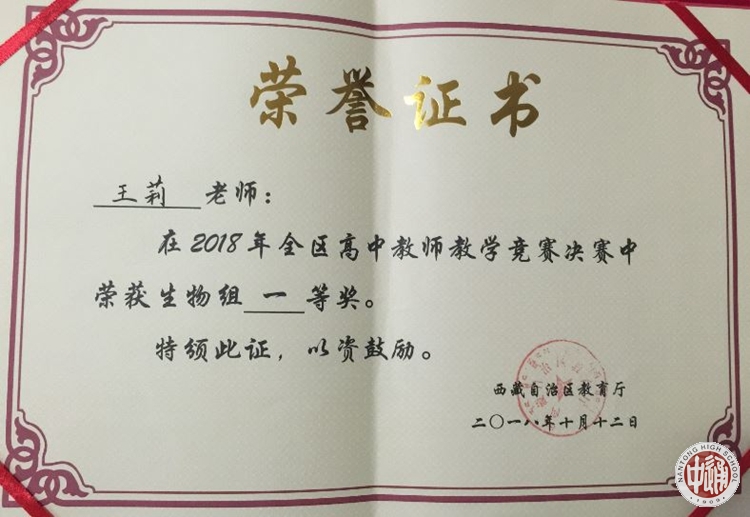 荣誉证书
王莉 老师：
在2018年全区高中教师教学竞赛决赛中
荣获生物组 一 等奖。
特颁此证，以资鼓励。
西藏自治区教育厅
二〇一八年十月十二日
NANTONG HIGH SCHOOL
中通
1909